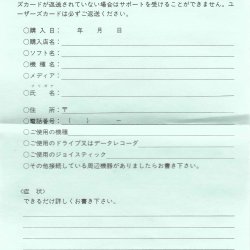 ズカードが返送されていない場合はサポートを受けることができません。ユ
ーザーズカードは必ずご返送ください。
○購入日： 年 月 日
○購入店名：
○ソフト名：
○機種名：
○メディア：
フリガナ
○氏名：
○住所：〒
○電話番号：（ ） ー
○ご使用の機種
○ご使用のドライブ又はデータレコーダ
○ご使用のジョイスティック
○その他接続している周辺機器がありましたらお書き下さい。
〈症 状〉
できるだけ詳しくお書き下さい。